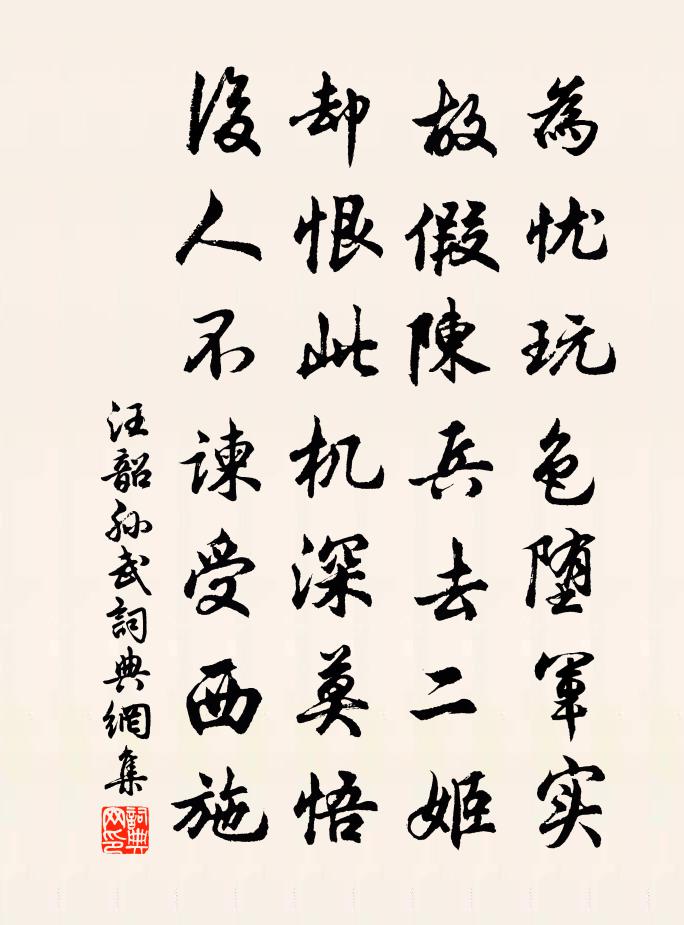 為忧玩色堕軍实
故假陳兵去二姬
却恨此机深莫悟
後人不諫受西施
汪韶孙武詞典網集
詞典網印